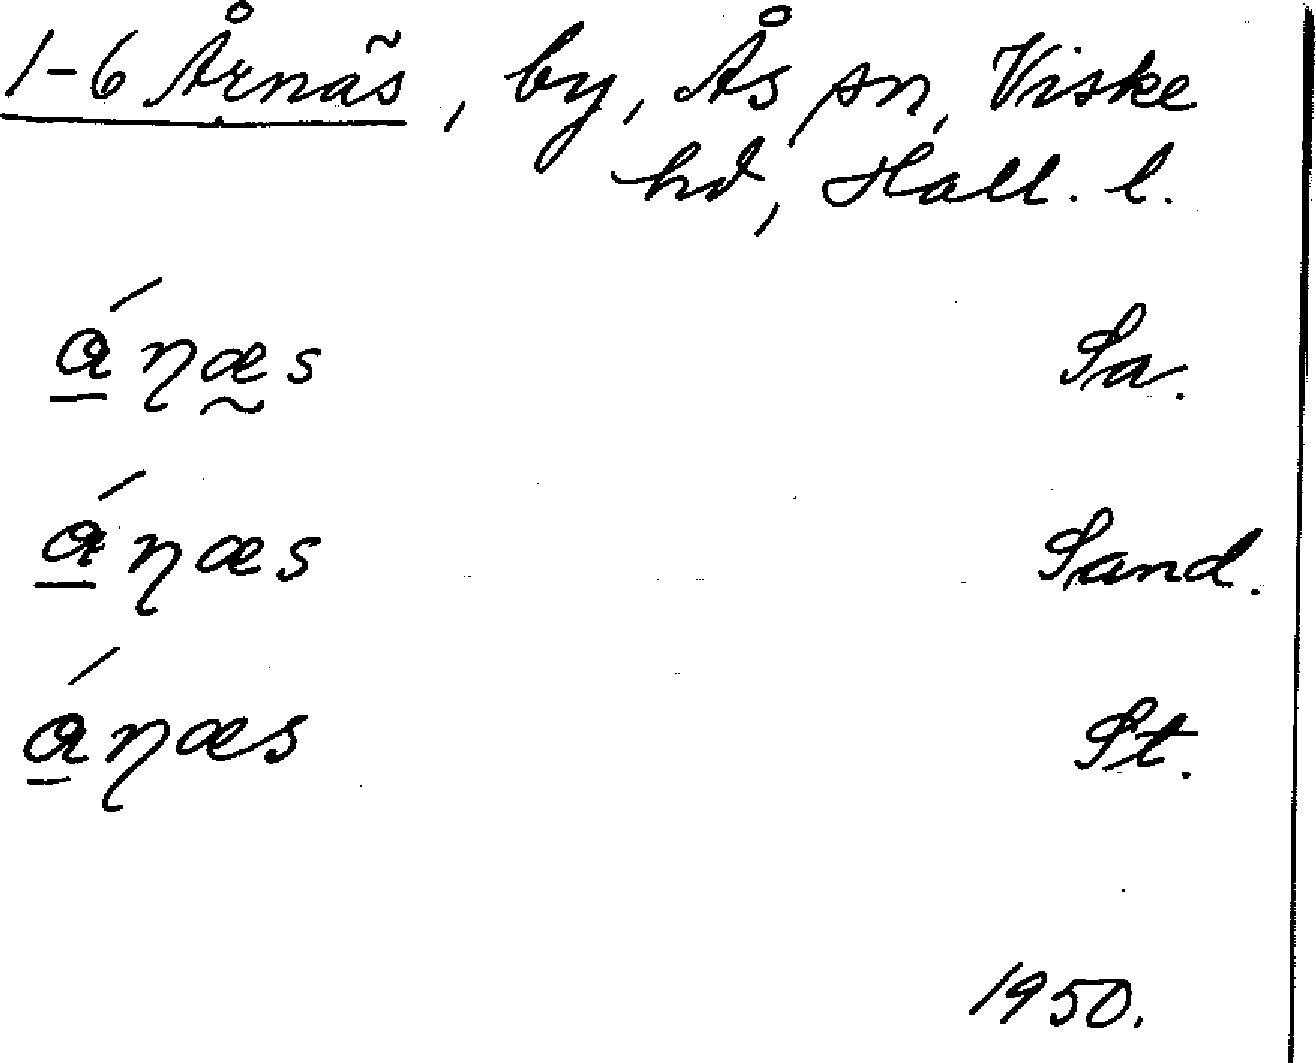 1-6 Årnäs, by, Ås sn, Viske
hd, Hall. l.
ɑ́ɳæs Sa.
ɑ́ɳæs Sand.
ɑ́ɳæs St.
1950.